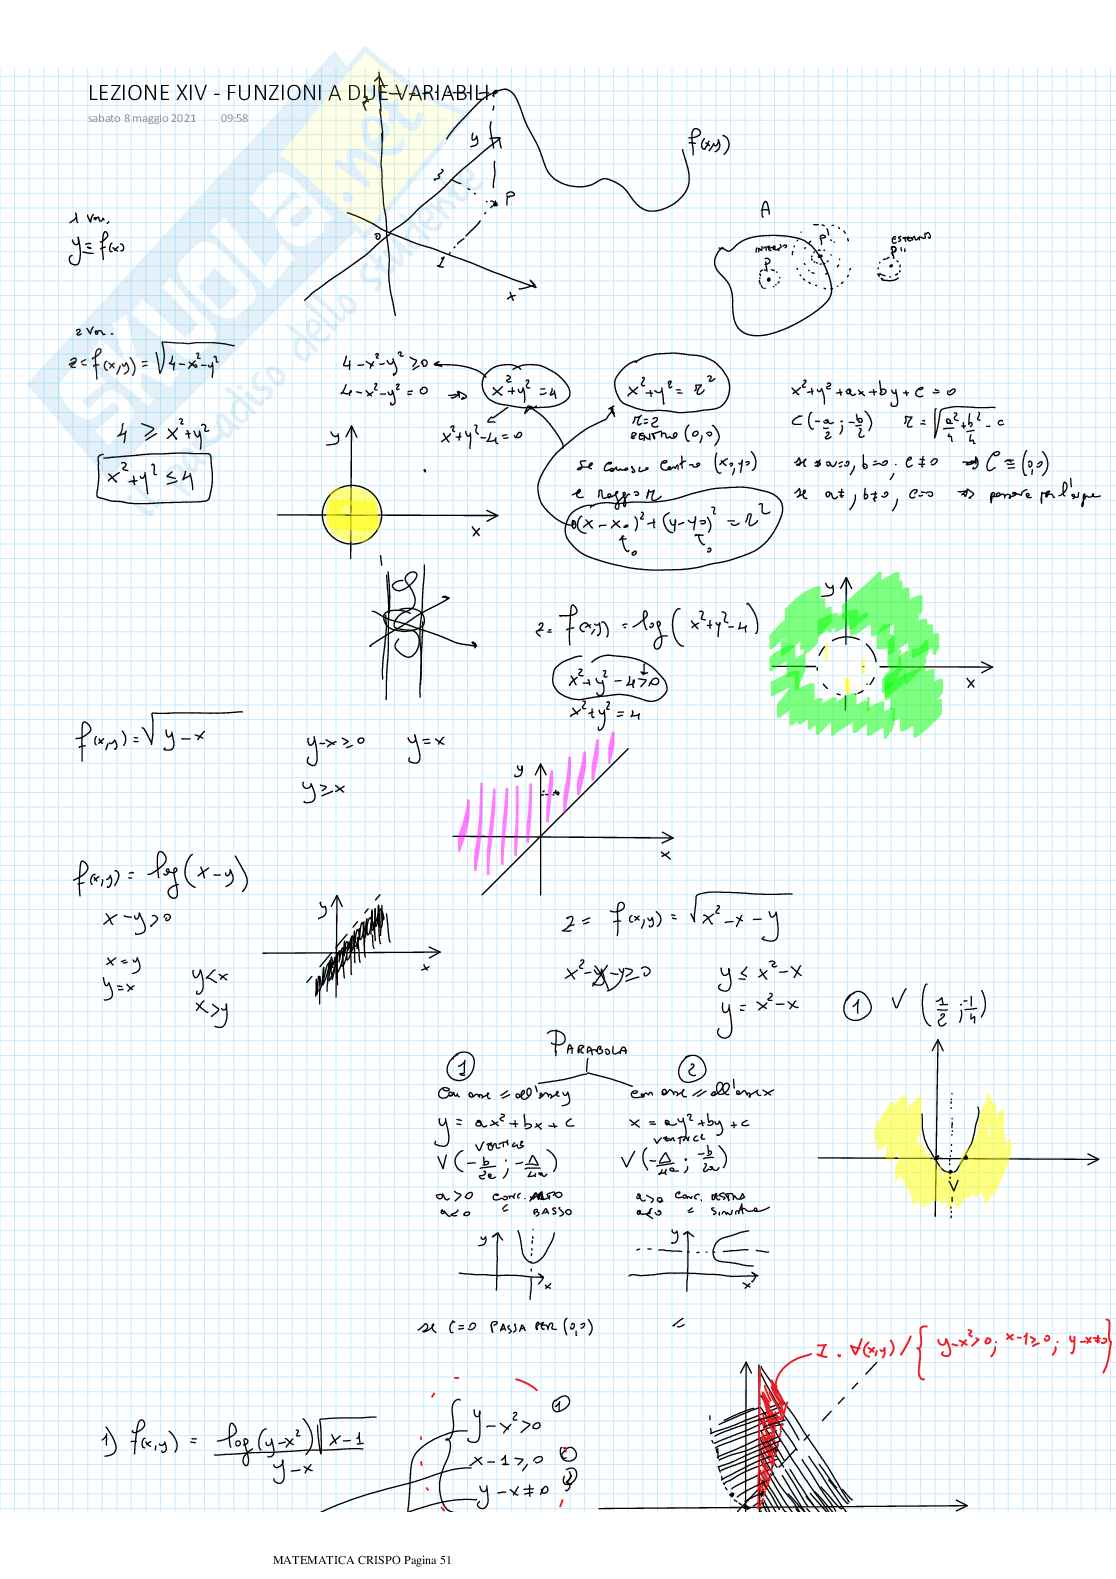 LEZIONE XIV - FUNZIONI A DUE VARIABILI
sabato 8 maggio 2021 09:58
SKUOLA.net
dello studente
z
y
3
P
0
1
x
f(x,y)
1 Var.
y = f(x)
A
INTERNO
P
P'
ESTERNO
P''
2 Var.
z = f(x,y) = √(4-x²-y²)
4 ≥ x²+y²
x²+y² ≤ 4
4-x²-y² ≥ 0
4-x²-y² = 0 => x²+y² = 4
x²+y²-4=0
y
x
x²+y² = r²
r=2
CENTRO (0,0)
se conosco centro (x₀,y₀)
e raggio r
(x-x₀)²+(y-y₀)² = r²
0 0
x²+y²+ax+by+c = 0
C(-a/2 ; -b/2) r = √(a²/4+b²/4-c)
se a=0, b=0, c≠0 => C ≡ (0,0)
se a≠, b≠0, c=0 => per l'origine
z = f(x,y) = log(x²+y²-4)
x²+y²-4>0
x²+y² = 4
y
x
f(x,y) = √(y-x)
y-x ≥ 0 y=x
y ≥ x
y
x
f(x,y) = log(x-y)
x-y>0
x=y
y=x
y<x
x>y
y
x
z = f(x,y) = √(x²-x-y)
x²-x-y≥0
y ≤ x²-x
y = x²-x
① V (1/2 ; -1/4)
V
PARABOLA
① ②
Con asse // all'asse y
con asse // all'asse x
y = ax²+bx+c
x = ay²+by+c
VERTICE
VERTICE
V(-b/2a ; -Δ/4a)
V(-Δ/4a ; -b/2a)
a>0 conc. ALTO
a<0 " BASSO
a>0 conc. DESTRA
a<0 " sinistra
y
x
y
x
se c=0 PASSA PER (0,0)
"
I. ∀(x,y) / { y-x²>0; x-1≥0; y-x≠0 }
1) f(x,y) = log(y-x²)√(x-1) / y-x
y-x²>0 ①
x-1≥0 ②
y-x≠0 ③
MATEMATICA CRISPO Pagina 51